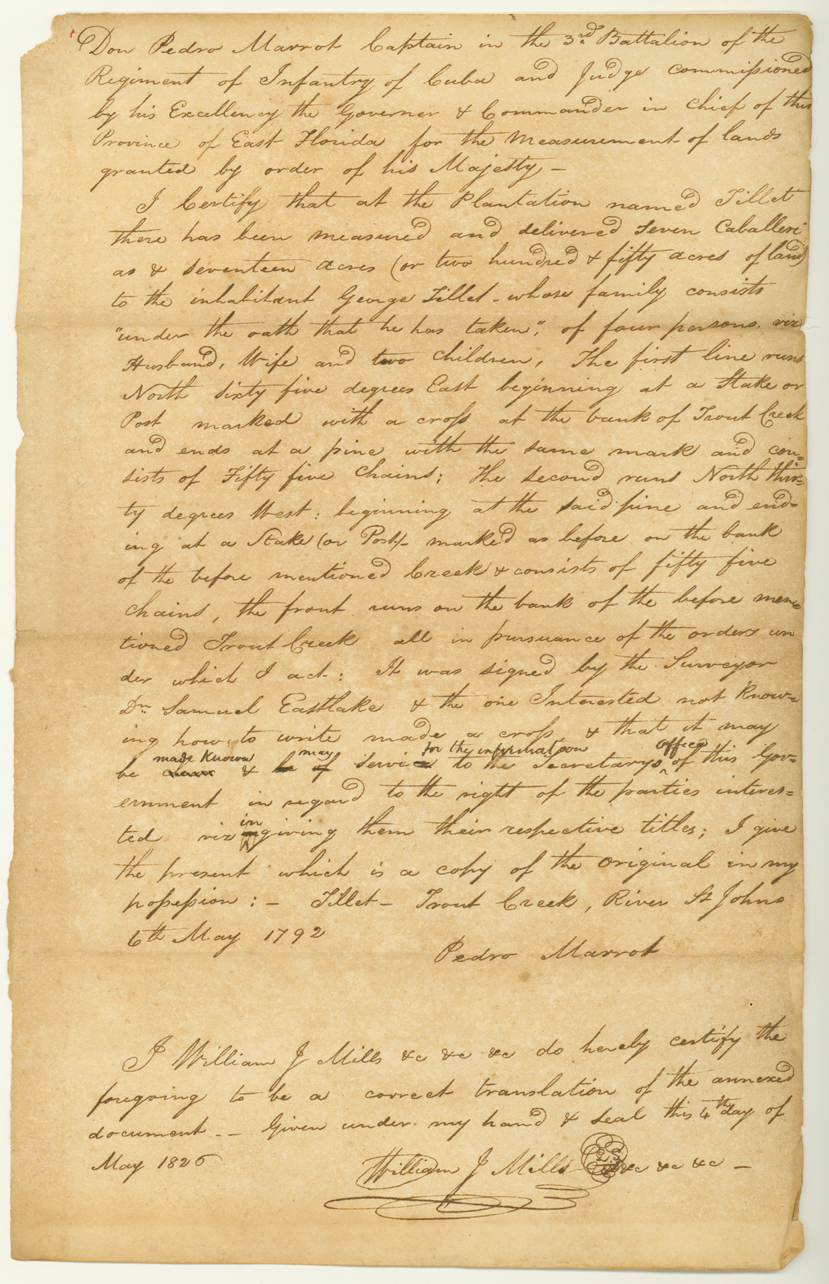 Don Pedro Marrot Captain in the 3rd Battalion of the
Regiment of Infantry of Cuba and Judge commissioned
by his Excellency the Governer & Commander in Chief of this
Province of East Florida for the Measurement of lands
granted by order of his Majetty –
I Certify that at the Plantation named Tillet
there has been measured and delivered Seven Caballeri
as & seventeen acres (or two hundred & fifty acres of land)
to the inhabitant George Tillet – whose family consists
"under the oath that he has taken", of four persons. viz
Husband, Wife and two Children, The first line runs
North sixty five degrees East beginning at a Stake or
Post marked with a cross at the bank of Trout Creek
and ends at a pine with the same mark and con=
sists of Fifty five Chains; The second runs North thir=
ty degrees West: beginning at the said pine and end=
ing at a Stake (or Post) – marked as before on the bank
of the before mentioned Creek & consists of fifty five
Chains, the front runs on the bank of the before men=
tioned Trout Creek all in pursuance of the orders un
der which I act: It was signed by the Surveyor
Dn. Samuel Eastlake & the one Interested not know=
ing how to write made a cross & that it may
made known may for the information office
be & of service to the Secretarys ^ of this Gov=
ernment in regard to the right of the parties interes=
in
ted viz giving them their respective titles; I give
the present which is a copy of the original in my
possession: – Tillet – Trout Creek, River St Johns
6th May 1792
Pedro Marrot
I William J Mills &c &c &c do hereby certify the
foregoing to be a correct translation of the annexed
document -- Given under my hand & seal this 4th day of
May 1826
William J Mills LS &c &c &c –